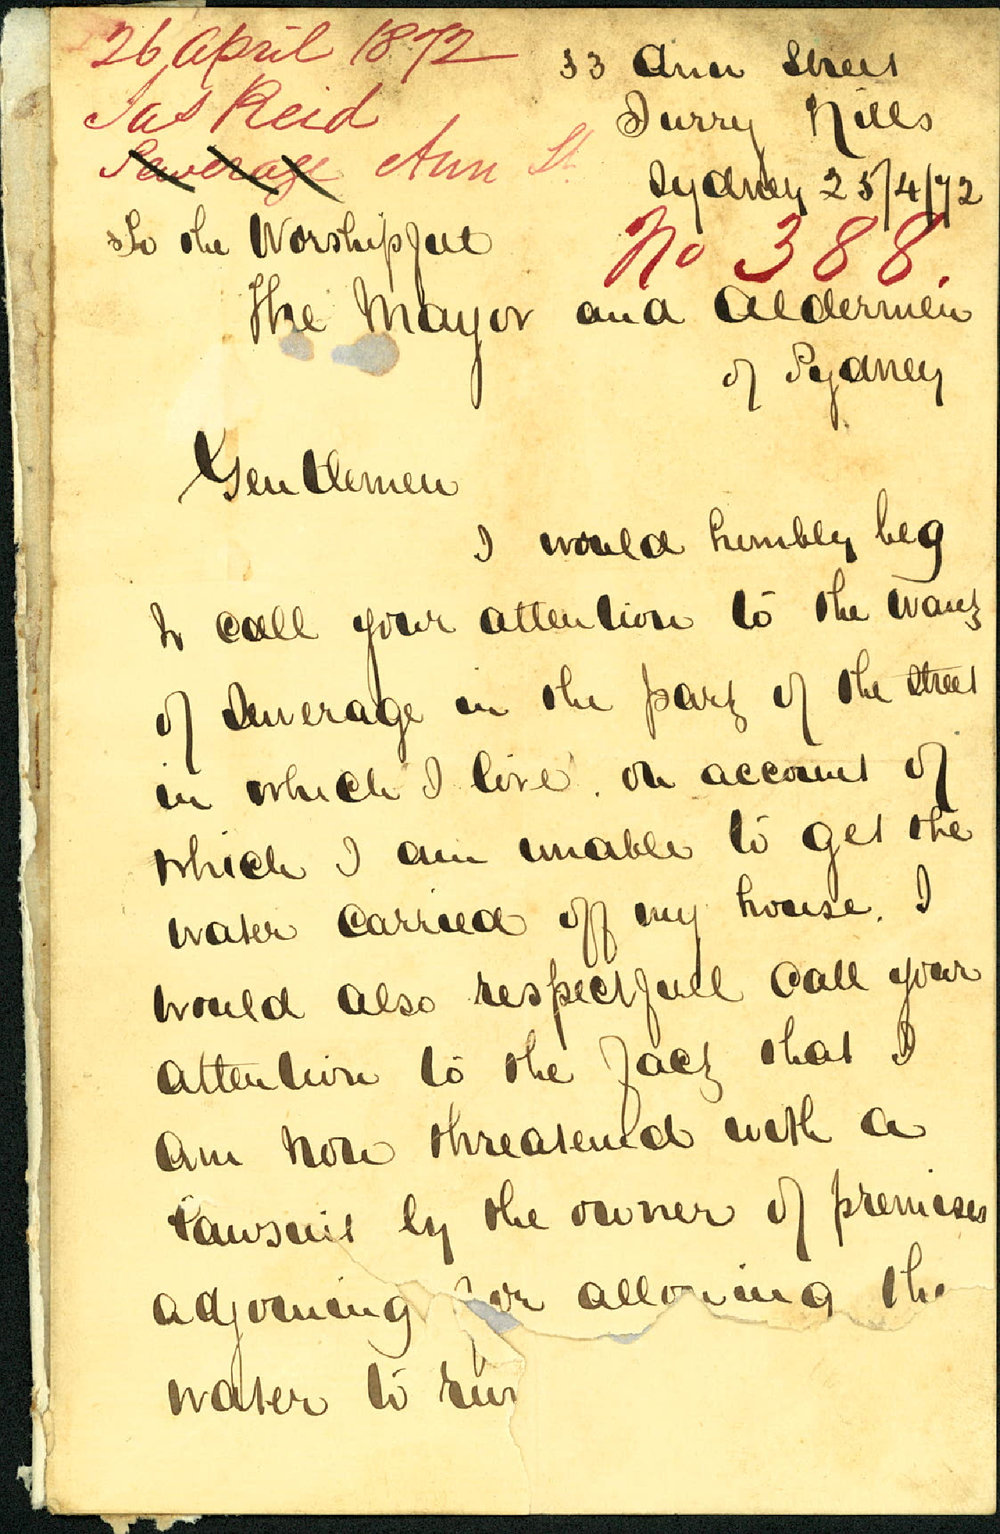 26 April 1872
Jas Reid
Sewerage Ann St.
33 Ann Street
Surry Hills
Sydney 25/4/72
No 388.
To the Worshipful
The Mayor and Aldermen
of Sydney
Gentlemen
I would humbly beg
to call your attention to the want
of Sewerage in the part of the street
in which I live. on account of
which I am unable to get the
water carried off my house. I
would also respectfull call your
attention to the fact that I
am now threatened with a
Lawsuit by the owner of premises
adjoining for allowing the
water to run